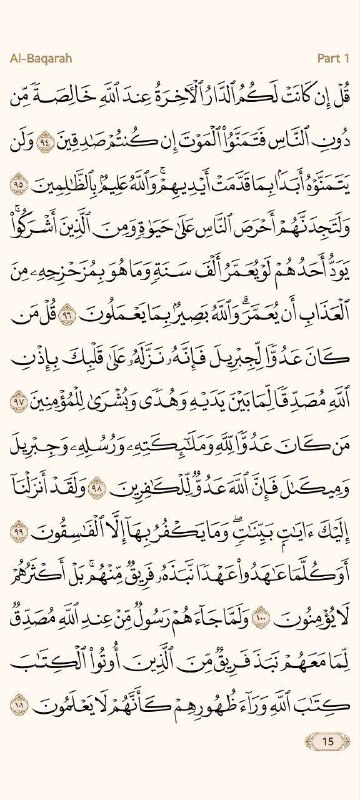 Al-Baqarah
Part 1
قُلْ إِن كَانَتْ لَكُمُ ٱلدَّارُ ٱلْءَاخِرَةُ عِندَ ٱللَّهِ خَالِصَةً مِّن
دُونِ ٱلنَّاسِ فَتَمَنَّوُا۟ ٱلْمَوْتَ إِن كُنتُمْ صَٰدِقِينَ ٩٤ وَلَن
يَتَمَنَّوْهُ أَبَدًۢا بِمَا قَدَّمَتْ أَيْدِيهِمْ ۗ وَٱللَّهُ عَلِيمٌۢ بِٱلظَّٰلِمِينَ ٩٥
وَلَتَجِدَنَّهُمْ أَحْرَصَ ٱلنَّاسِ عَلَىٰ حَيَوٰةٍ وَمِنَ ٱلَّذِينَ أَشْرَكُوا۟ ۚ
يَوَدُّ أَحَدُهُمْ لَوْ يُعَمَّرُ أَلْفَ سَنَةٍ وَمَا هُوَ بِمُزَحْزِحِهِۦ مِنَ
ٱلْعَذَابِ أَن يُعَمَّرَ ۗ وَٱللَّهُ بَصِيرٌۢ بِمَا يَعْمَلُونَ ٩٦ قُلْ مَن
كَانَ عَدُوًّا لِّجِبْرِيلَ فَإِنَّهُۥ نَزَّلَهُۥ عَلَىٰ قَلْبِكَ بِإِذْنِ
ٱللَّهِ مُصَدِّقًا لِّمَا بَيْنَ يَدَيْهِ وَهُدًى وَبُشْرَىٰ لِلْمُؤْمِنِينَ ٩٧
مَن كَانَ عَدُوًّا لِّلَّهِ وَمَلَٰٓئِكَتِهِۦ وَرُسُلِهِۦ وَجِبْرِيلَ
وَمِيكَىٰلَ فَإِنَّ ٱللَّهَ عَدُوٌّ لِّلْكَٰفِرِينَ ٩٨ وَلَقَدْ أَنزَلْنَآ
إِلَيْكَ ءَايَٰتٍۭ بَيِّنَٰتٍ ۖ وَمَا يَكْفُرُ بِهَآ إِلَّا ٱلْفَٰسِقُونَ ٩٩
أَوَكُلَّمَا عَٰهَدُوا۟ عَهْدًا نَّبَذَهُۥ فَرِيقٌ مِّنْهُم ۚ بَلْ أَكْثَرُهُمْ
لَا يُؤْمِنُونَ ١٠٠ وَلَمَّا جَآءَهُمْ رَسُولٌ مِّنْ عِندِ ٱللَّهِ مُصَدِّقٌ
لِّمَا مَعَهُمْ نَبَذَ فَرِيقٌ مِّنَ ٱلَّذِينَ أُوتُوا۟ ٱلْكِتَٰبَ
كِتَٰبَ ٱللَّهِ وَرَآءَ ظُهُورِهِمْ كَأَنَّهُمْ لَا يَعْلَمُونَ ١٠١
15